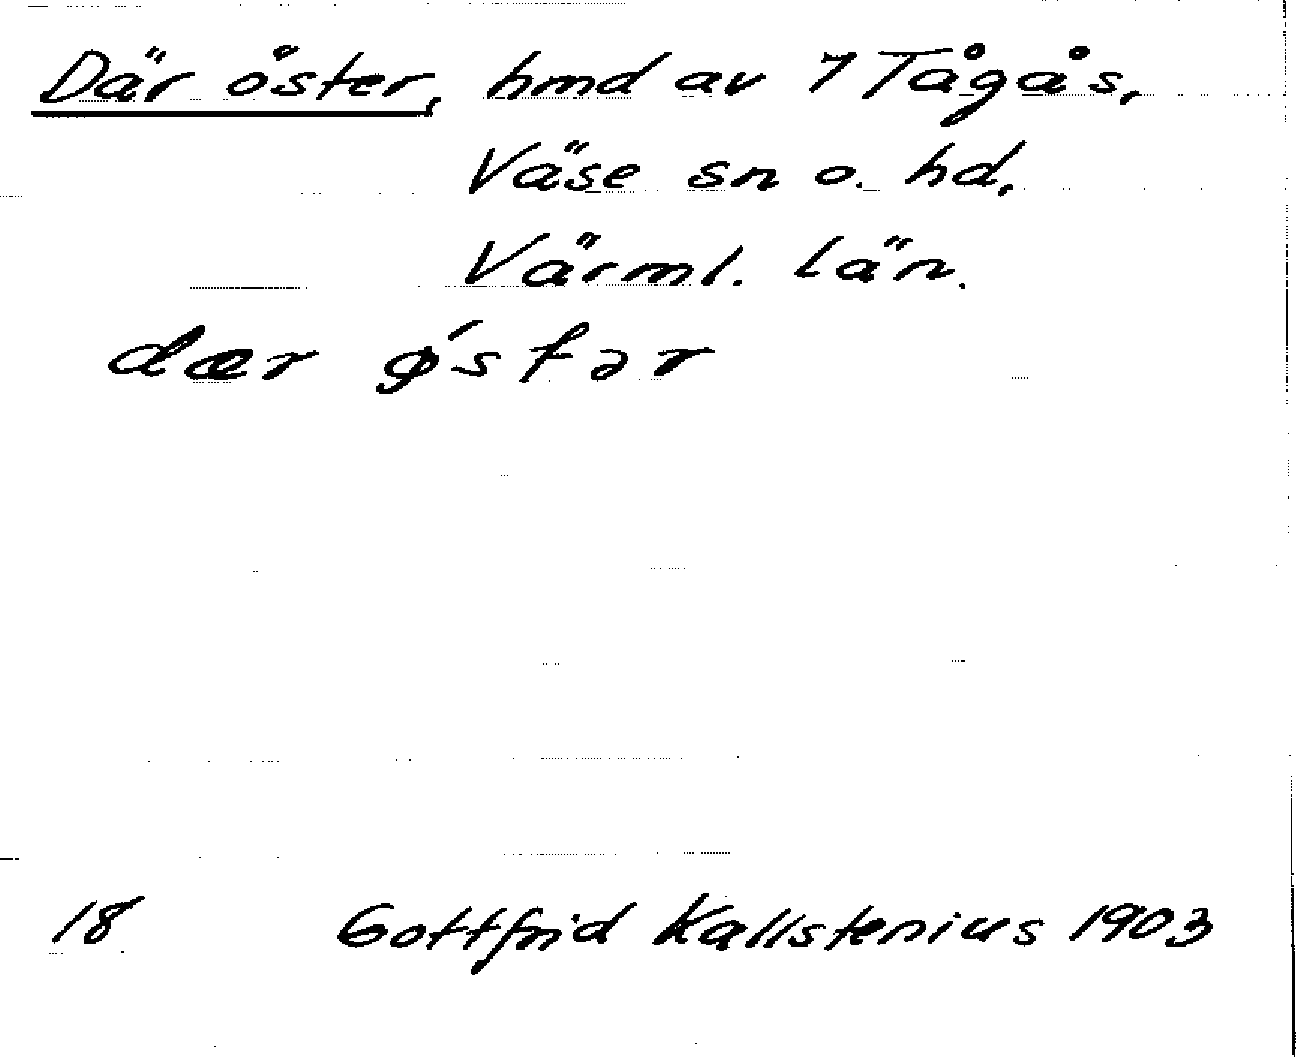 Där öster, hmd av 7 Tågås,
Väse sn o. hd,
Värml. län.
dær ǿstər
18 Gottfrid Kallstenius 1903